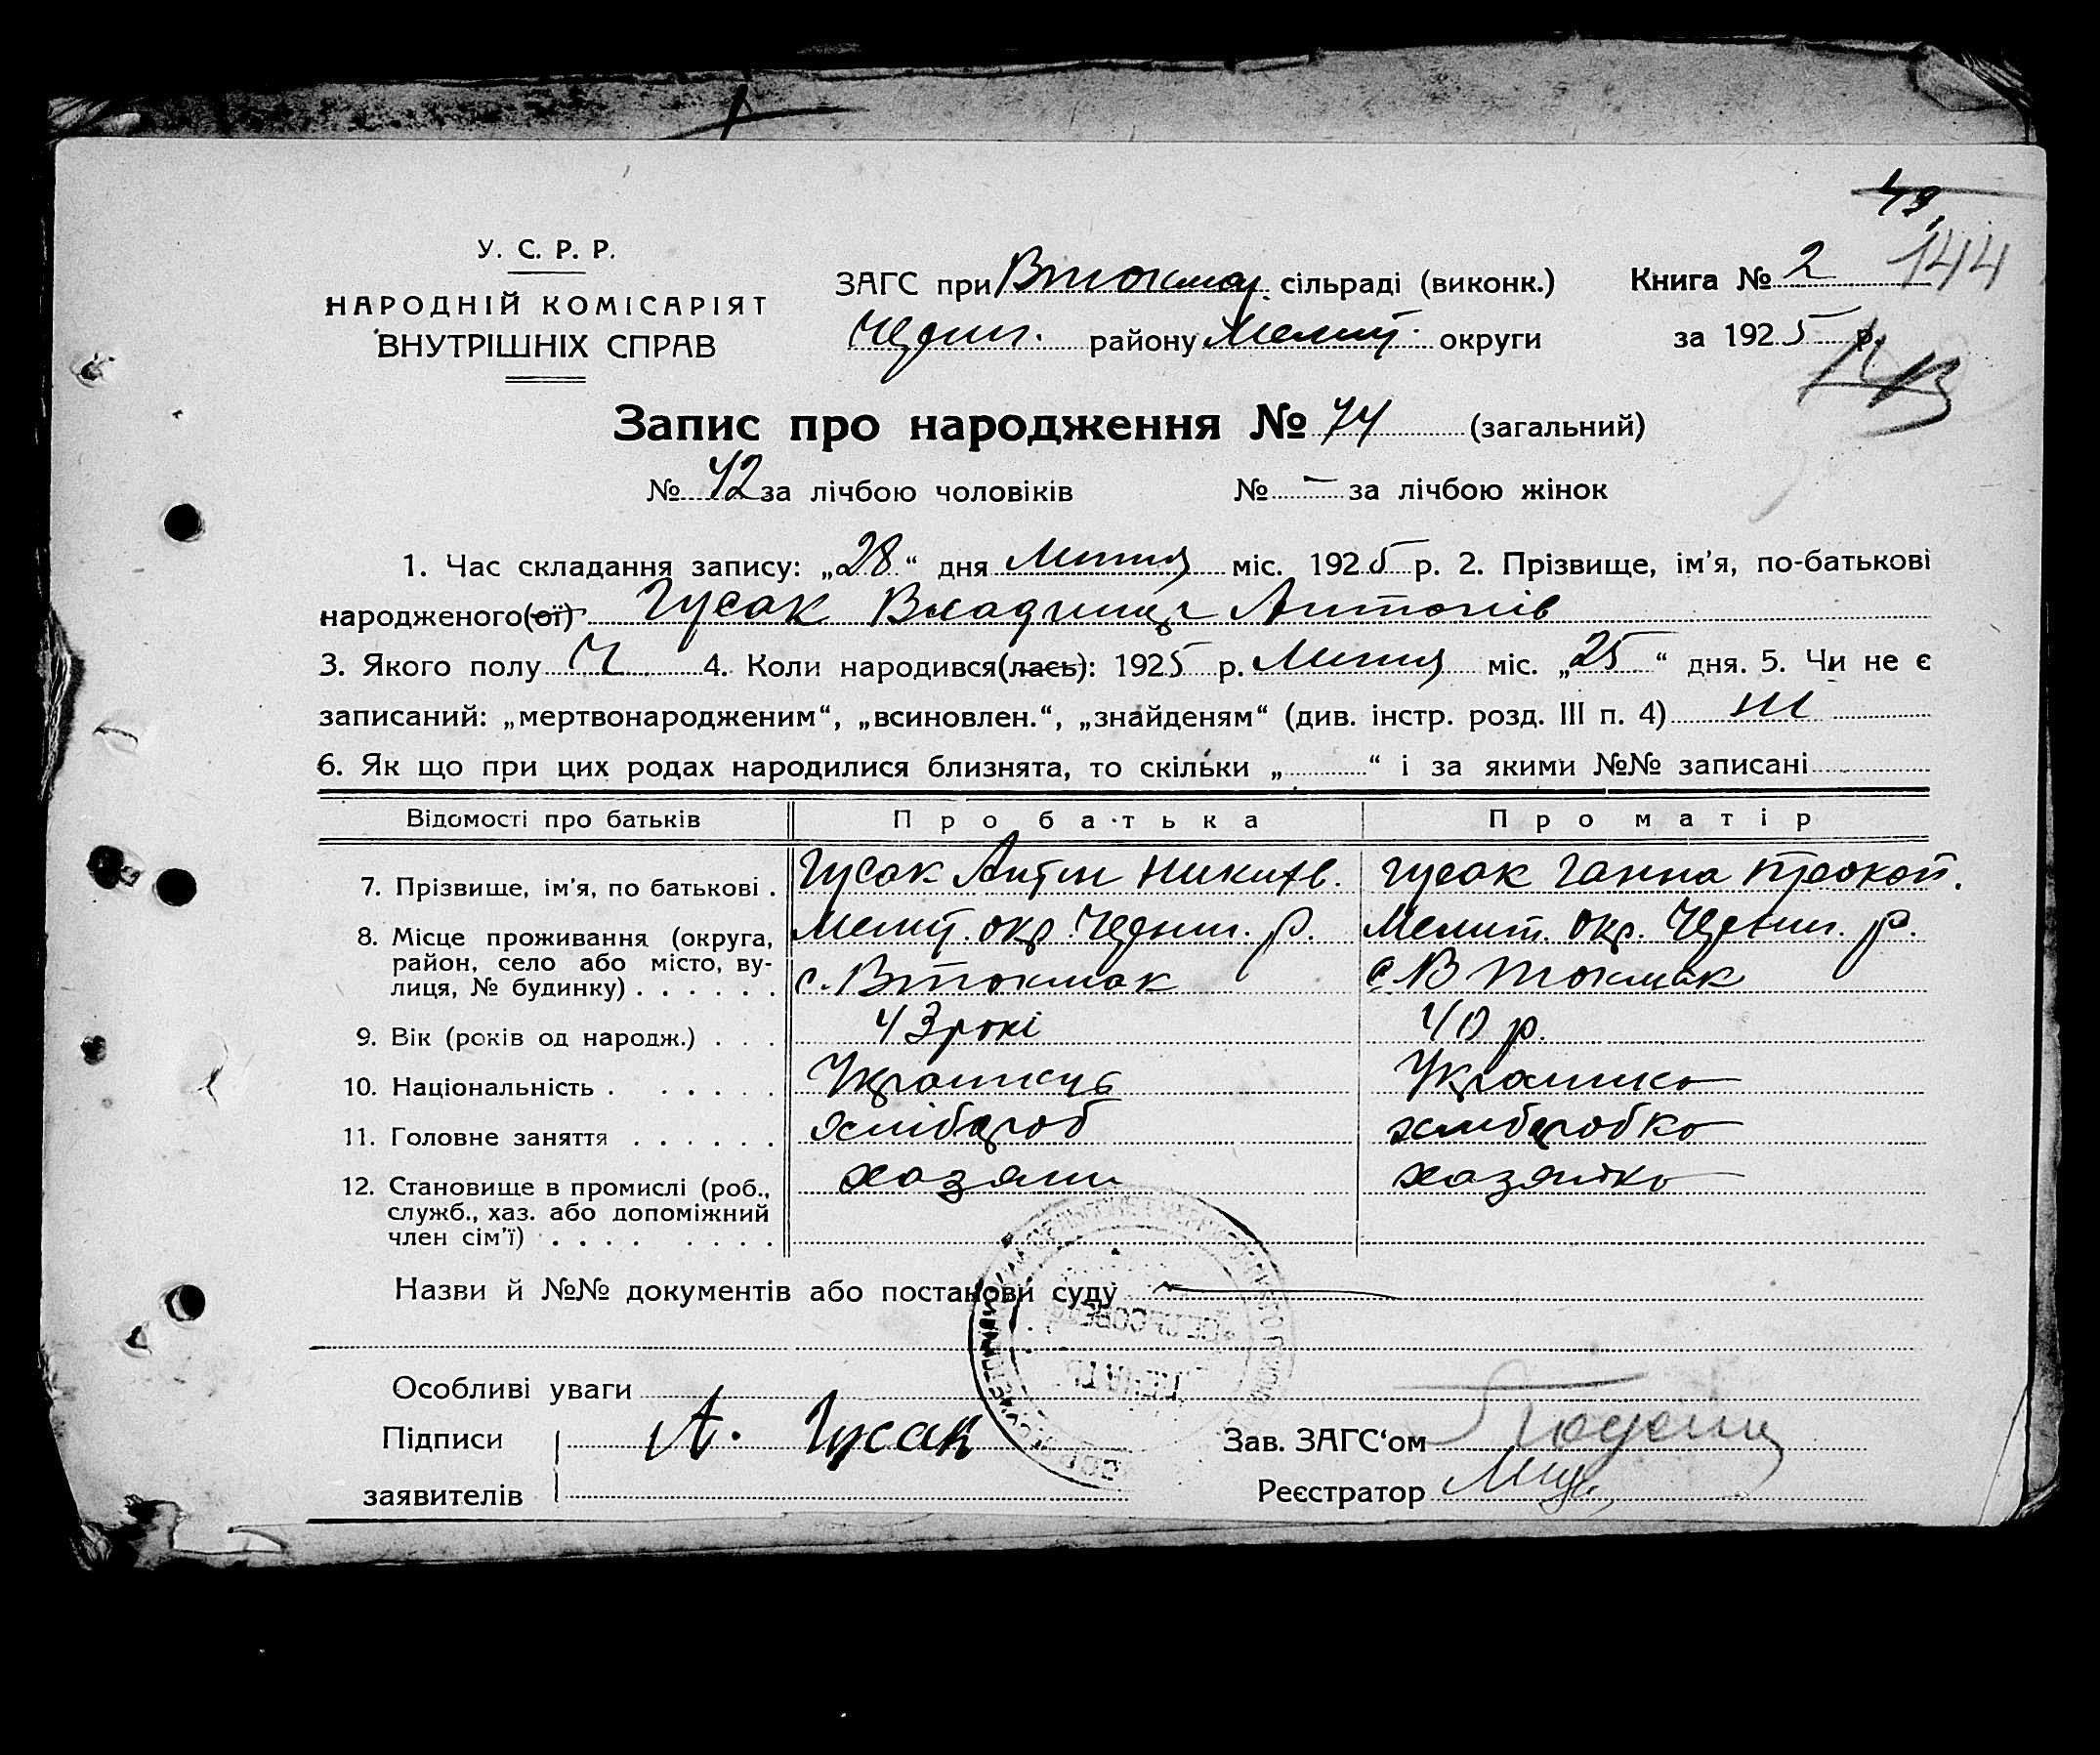 49
У. С. Р. Р.
ЗАГС при Втокмац. сільраді (виконк.) Книга № 2 144
НАРОДНІЙ КОМІСАРІЯТ
ВНУТРІШНІХ СПРАВ
района Мелит. округи за 1925 р.
Запис про народження № 74 (загальний)
№ 42 за лічбою чоловіків № - за лічбою жінок
1. Час складання запису: „28“ дня Липня міс. 1925 р. 2. Прізвище, ім'я, по-батькові
народженого(ої) Гусак Владимір Антонів
3. Якого полу Ч 4. Коли народився(лась): 1925 р. Липня міс. „25“ дня. 5. Чи не є
записаний: „мертвонародженим“, „всиновлен.“, „знайденям“ (див. інстр. розд. III п. 4) ні
6. Як що при цих родах народилися близнята, то скільки „ “ і за якими №№ записані
Відомості про батьків Про батька Про матір
7. Прізвище, ім'я, по батькові . Гусак Антін Никитів. Гусак Ганна Прокоп.
8. Місце проживання (округа, Мелит. окр. р. Мелит. окр. р.
район, село або місто, ву-
лиця, № будинку) . . . . . . с. Втокмак с. В Токмак
9. Вік (років од народж.) . . . 43 рокі 40 р.
10. Національність . . . . . . Українець Українка
11. Головне заняття . . . . . . хлібороб хліборобка
12. Становище в промислі (роб., хазяин хазяйка
служб., хаз. або допоміжний
член сім'ї) . . . . . . . .
Назви й №№ документів або постанови суду
Особливі уваги
Підписи А. Гусак Зав. ЗАГС'ом
заявителів Реєстратор